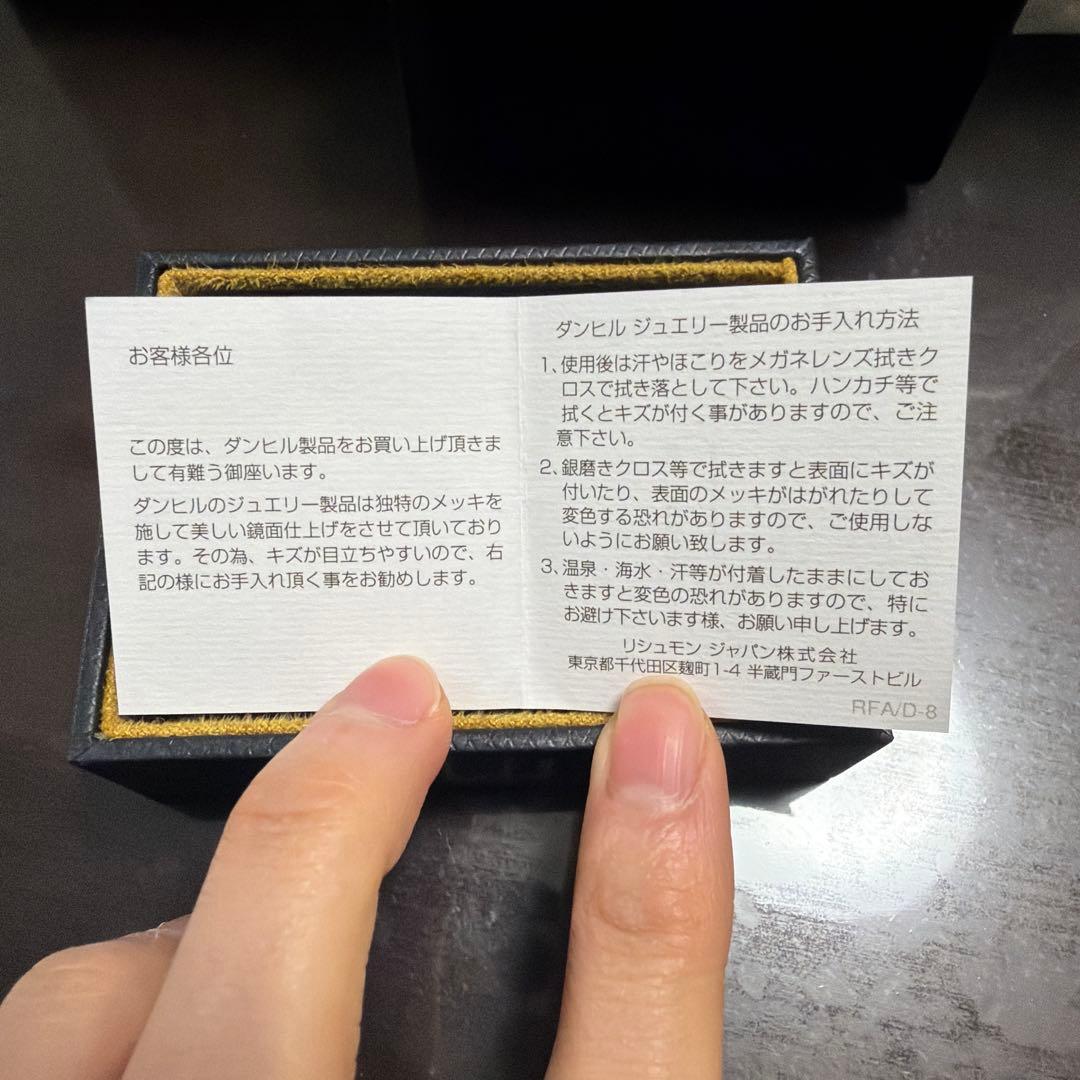 お客様各位
この度は、ダンヒル製品をお買い上げ頂きま
して有難う御座います。
ダンヒルのジュエリー製品は独特のメッキを
施して美しい鏡面仕上げをさせて頂いており
ます。その為、キズが目立ちやすいので、右
記の様にお手入れ頂く事をお勧めします。
ダンヒル ジュエリー製品のお手入れ方法
1、使用後は汗やほこりをメガネレンズ拭きク
ロスで拭き落として下さい。ハンカチ等で
拭くとキズが付く事がありますので、ご注
意下さい。
2、銀磨きクロス等で拭きますと表面にキズが
付いたり、表面のメッキがはがれたりして
変色する恐れがありますので、ご使用しな
いようにお願い致します。
3、温泉・海水・汗等が付着したままにしてお
きますと変色の恐れがありますので、特に
お避け下さいます様、お願い申し上げます。
リシュモン ジャパン株式会社
東京都千代田区麹町1-4 半蔵門ファーストビル
RFA/D-8